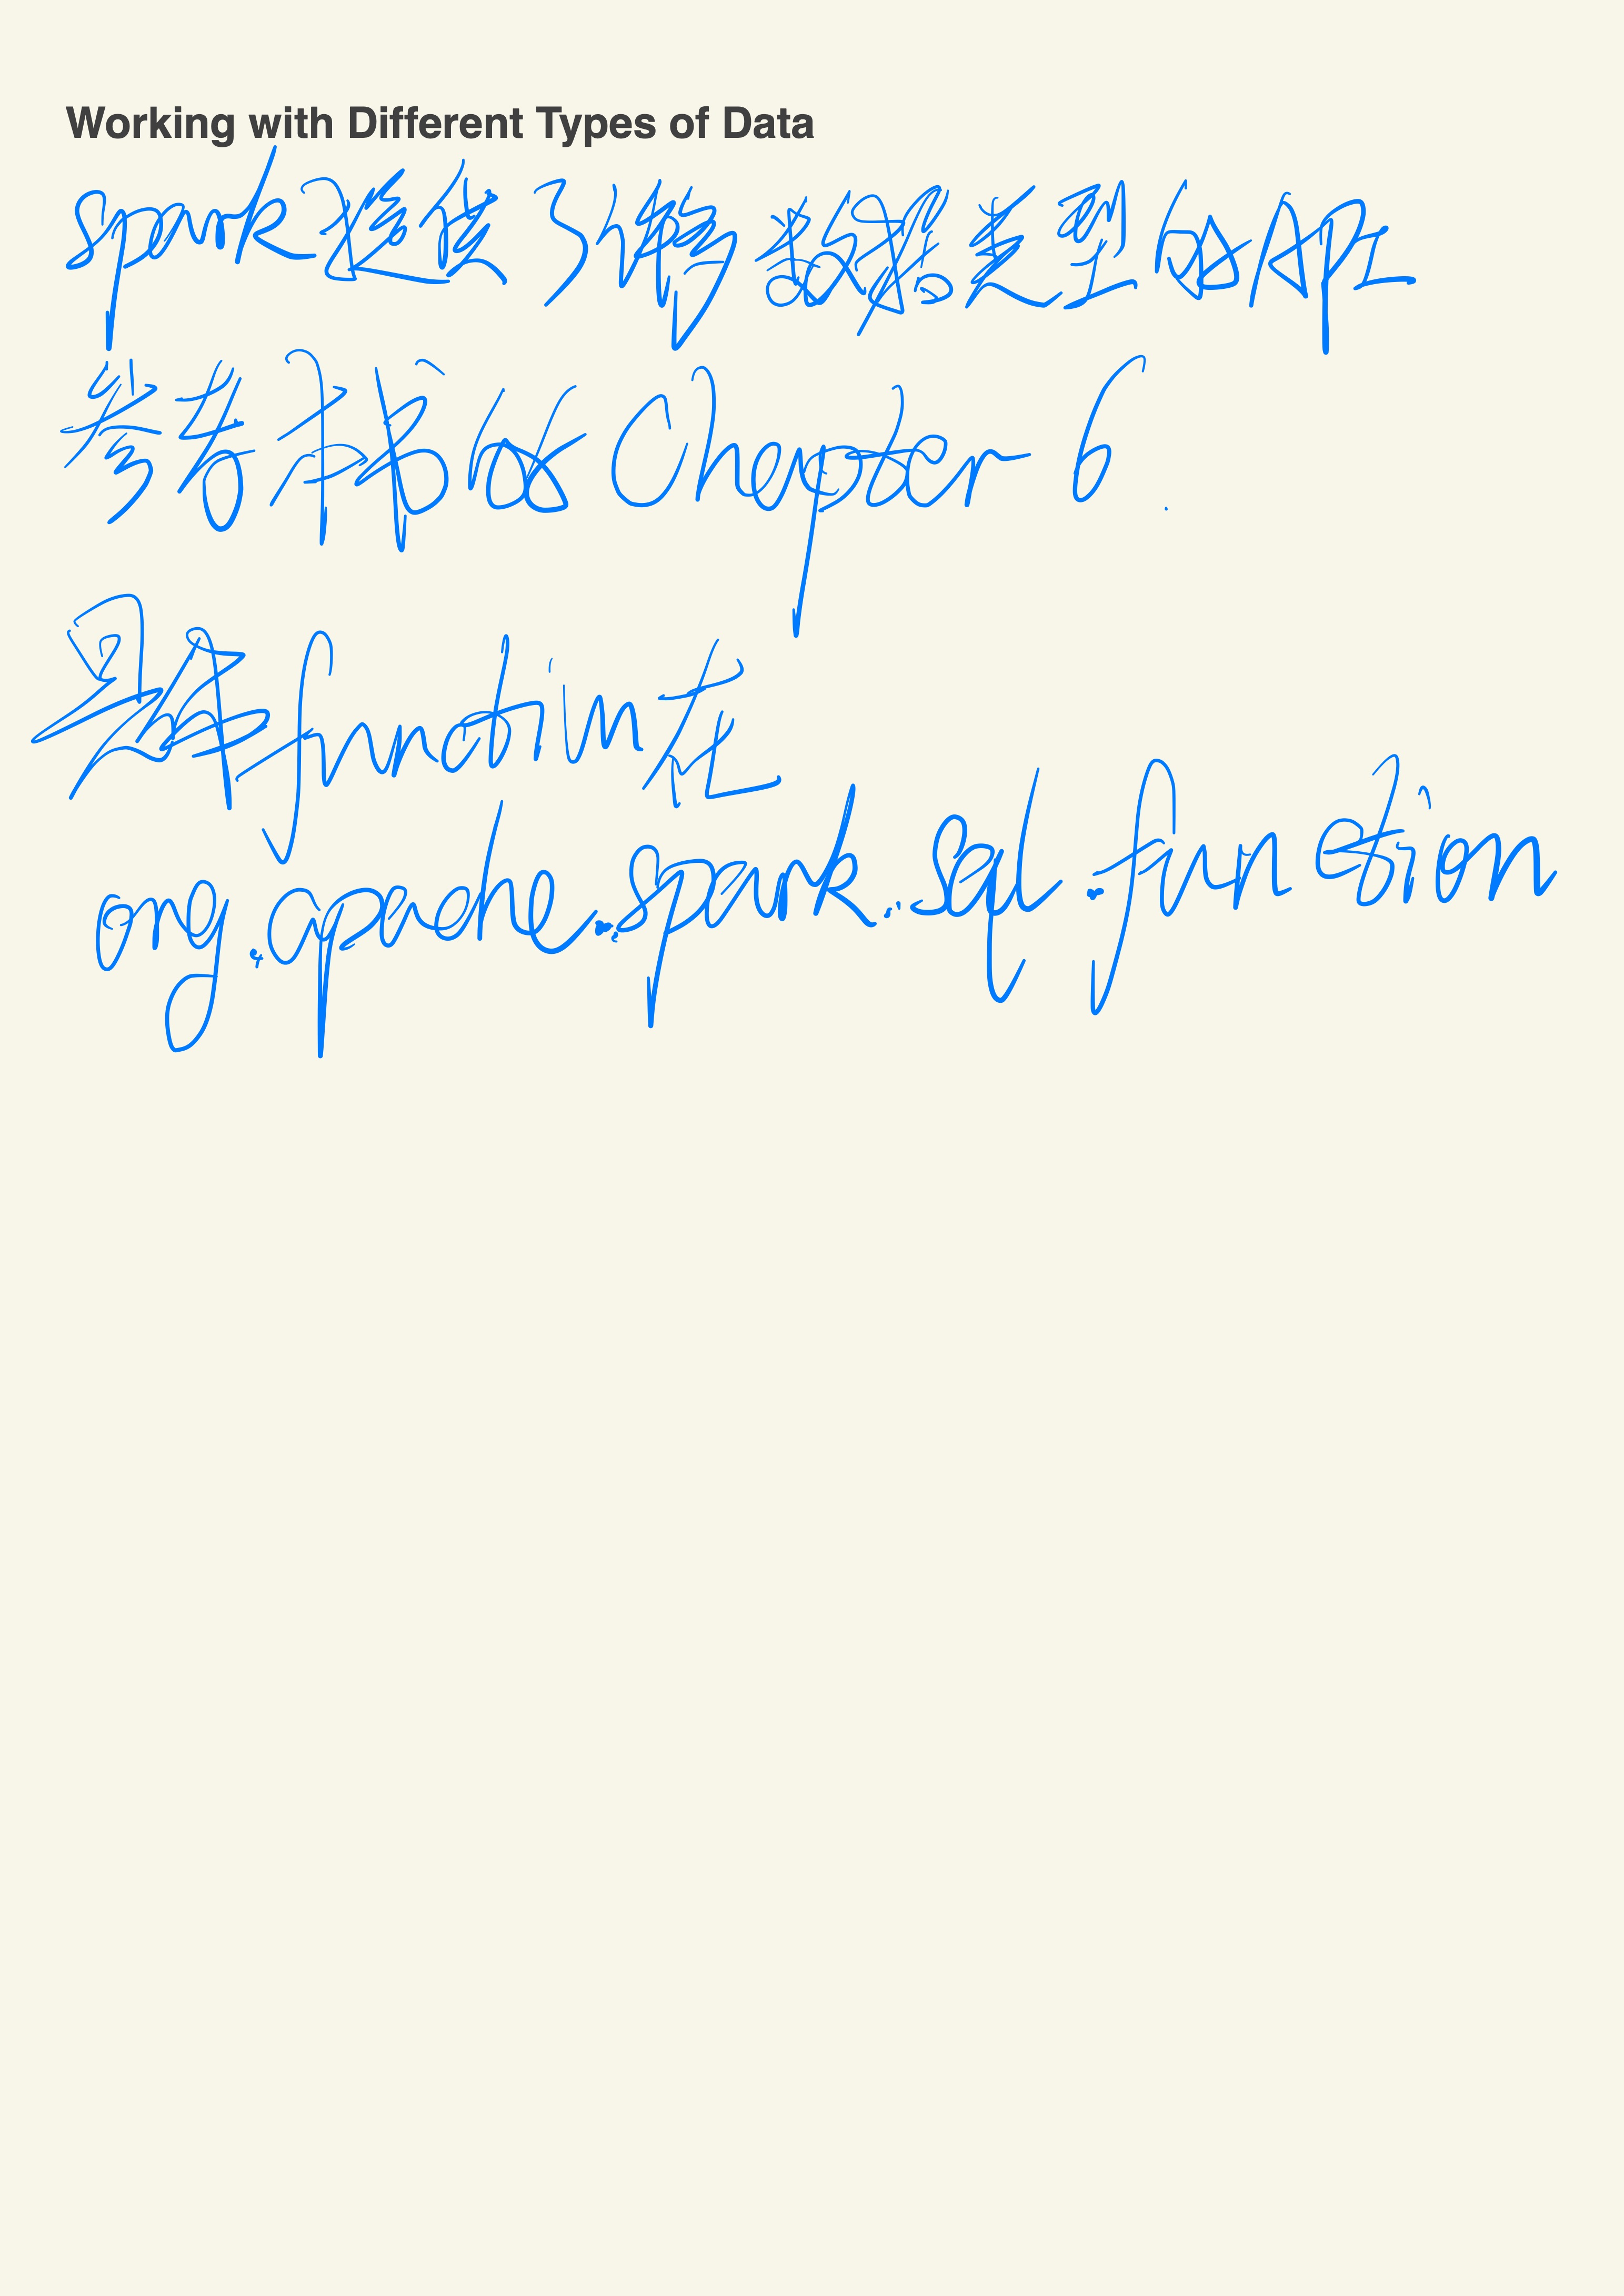 Working with Different Types of Data
spark 提供了解数据类型的API
参考书的 Chapter 6.
具体 function 在
org.apache.spark.sql.function